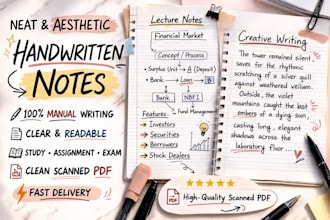 NEAT & AESTHETIC
HANDWRITTEN
NOTES
100% MANUAL WRITING
CLEAR & READABLE
STUDY • ASSIGNMENT • EXAM
CLEAN SCANNED PDF
FAST DELIVERY
Lecture Notes
Financial Market
Concept / Process
Surplus Unit → A (Deposit)
Bank → Loan → B
Bank NBFI
Features: Fund Management
→ Investors
→ Securities
→ Borrowers
→ Stock Dealers
Creative Writing
The tower remained silent
saves for the rhythmic
scratching of a silver quill
against weathered vellum.
Outside, the violet
mountains caught the last
embers of a dying son,
casting long, elegant
shadows across the
laboratory floor.
PDF
High-Quality Scanned PDF